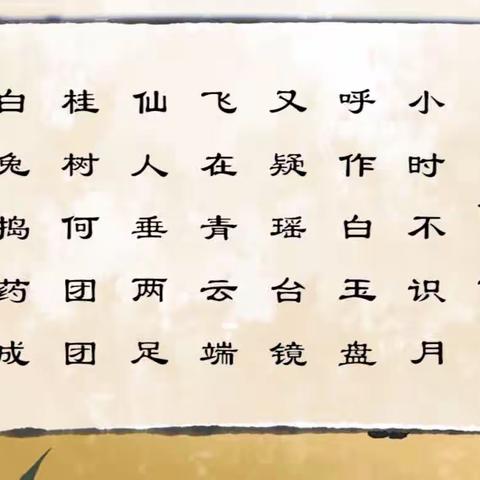 小时不识月
呼作白玉盘
又疑瑶台镜
飞在青云端
仙人垂两足
桂树何团团
白兔捣药成